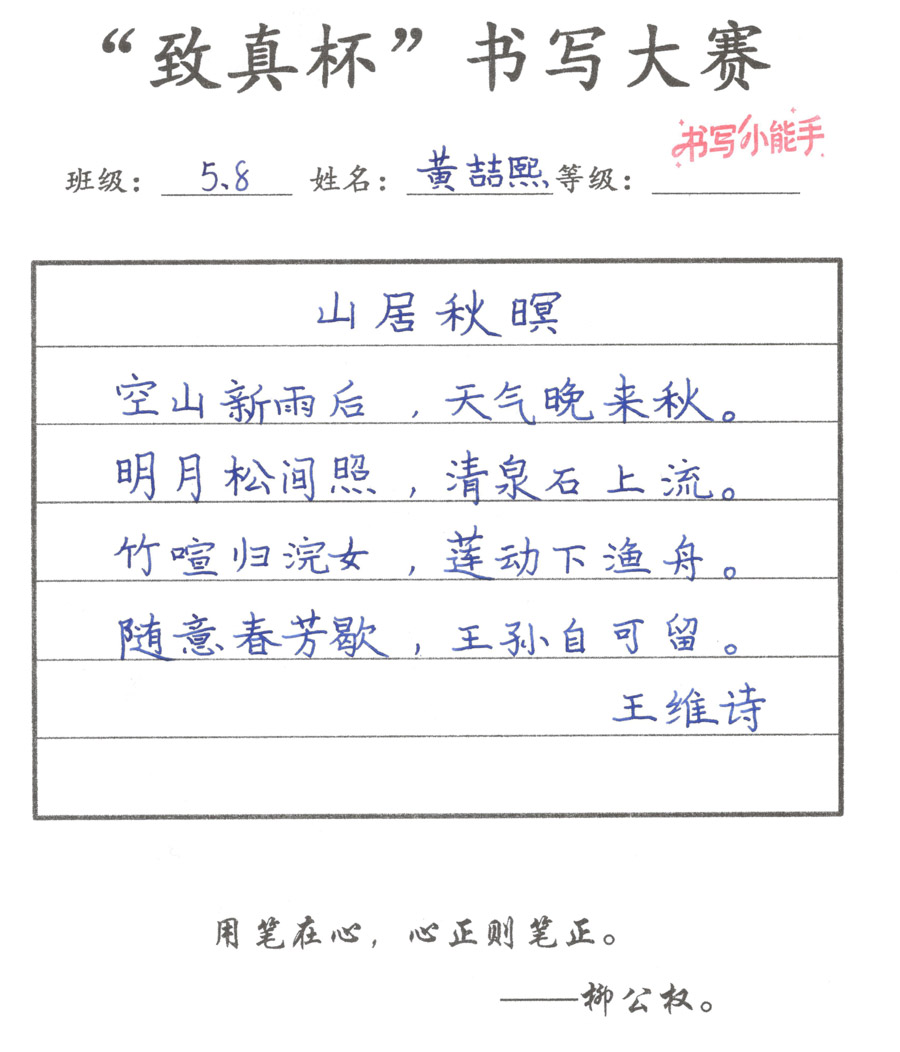 “致真杯”书写大赛
书写小能手
班级：5.8 姓名：黄喆熙 等级：
山居秋暝
空山新雨后，天气晚来秋。
明月松间照，清泉石上流。
竹喧归浣女，莲动下渔舟。
随意春芳歇，王孙自可留。
王维诗
用笔在心，心正则笔正。
——柳公权。